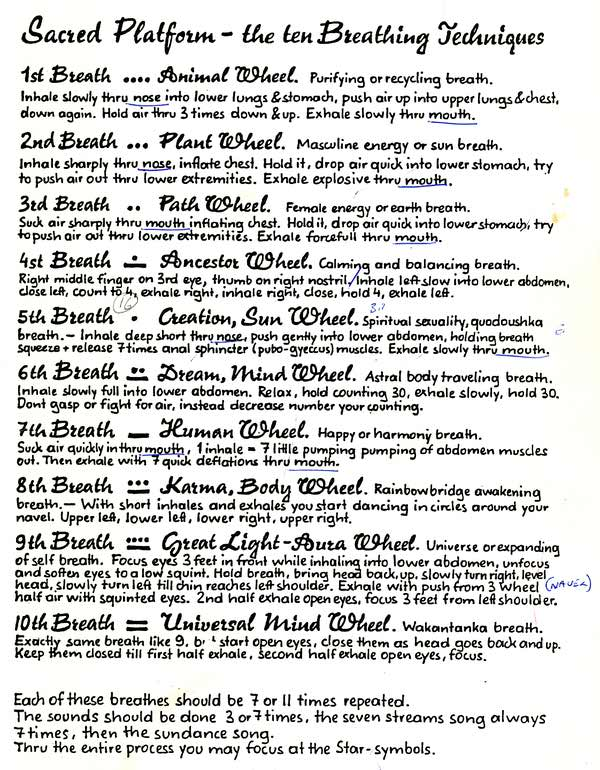 Sacred Platform - the ten Breathing Techniques
1st Breath •••• Animal Wheel. Purifying or recycling breath.
Inhale slowly thru nose into lower lungs & stomach, push air up into upper lungs & chest,
down again. Hold air thru 3 times down & up. Exhale slowly thru mouth.
2nd Breath ••• Plant Wheel. Masculine energy or sun breath.
Inhale sharply thru nose, inflate chest. Hold it, drop air quick into lower stomach, try
to push air out thru lower extremities. Exhale explosive thru mouth.
3rd Breath •• Path Wheel. Female energy or earth breath.
Suck air sharply thru mouth inflating chest. Hold it, drop air quick into lower stomach, try
to push air out thru lower extremities. Exhale forcefull thru mouth.
4st Breath ∸ Ancestor Wheel. Calming and balancing breath.
Right middle finger on 3rd eye, thumb on right nostril, Inhale left slow into lower abdomen,
close left, count to 4, exhale right, inhale right, close, hold 4, exhale left.
16
5th Breath • Creation, Sun Wheel. Spiritual sexuality, quodoushka
breath. - Inhale deep short thru nose, push gently into lower abdomen, holding breath
squeeze + release 7 times anal sphincter (pubo-gyeccus) muscles. Exhale slowly thru mouth.
6th Breath •• Dream, Mind Wheel. Astral body traveling breath.
Inhale slowly full into lower abdomen. Relax, hold counting 30, exhale slowly, hold 30.
Dont gasp or fight for air, instead decrease number your counting.
7th Breath — Human Wheel. Happy or harmony breath.
Suck air quickly in thru mouth, 1 inhale = 7 little pumping pumping of abdomen muscles
out. Then exhale with 7 quick deflations thru mouth.
8th Breath ••• Karma, Body Wheel. Rainbowbridge awakening
breath. - With short inhales and exhales you start dancing in circles around your
navel. Upper left, lower left, lower right, upper right.
9th Breath •••• Great Light-Aura Wheel. Universe or expanding
of self breath. Focus eyes 3 feet in front while inhaling into lower abdomen, unfocus
and soften eyes to a low squint. Hold breath, bring head back, up, slowly turn right, level
head, slowly turn left till chin reaches left shoulder. Exhale with push from 3 Wheel (NAVEL)
half air with squinted eyes. 2nd half exhale open eyes, focus 3 feet from left shoulder.
10th Breath = Universal Mind Wheel. Wakantanka breath.
Exactly same breath like 9, start open eyes, close them as head goes back and up.
Keep them closed till first half exhale, second half exhale open eyes, focus.
Each of these breathes should be 7 or 11 times repeated.
The sounds should be done 3 or 7 times, the seven streams song always
7 times, then the sundance song.
Thru the entire process you may focus at the Star-symbols.